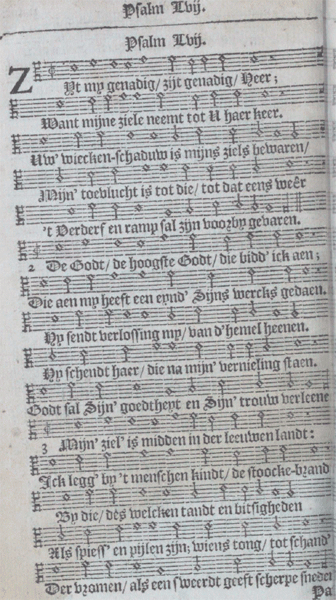 Psalm Lvij.
Psalm Lvij.
Zyt my genadig/ zijt genadig/ Heer;
Want mijne ziele neemt tot U haer keer.
Uw' wiecken-schaduw is mijns ziels bewaren/
Mijn' toevlucht is tot die/ tot dat eens weêr
't Verderf en ramp sal zijn voorby gevaren.
2 De Godt/ de hoogste Godt/ die bidd' ick aen;
Die aen my heeft een eynd' Sijns wercks gedaen.
Hy sendt verlossing my/ van d' hemel heenen.
Hy schendt haer/ die na mijn' vernieling staen.
Godt sal Sijn' goedtheyt en Sijn' trouw verleene
3 Mijn' ziel' is midden in der leeuwen landt:
Ick legg' by 't menschen kindt/ de stoocke-brand
By die/ des welcken tandt en bitsigheden
Als spiess' en pijlen zijn; wiens tong/ tot schand'
Der vromen/ als een sweerdt geeft scherpe sneden
Psa